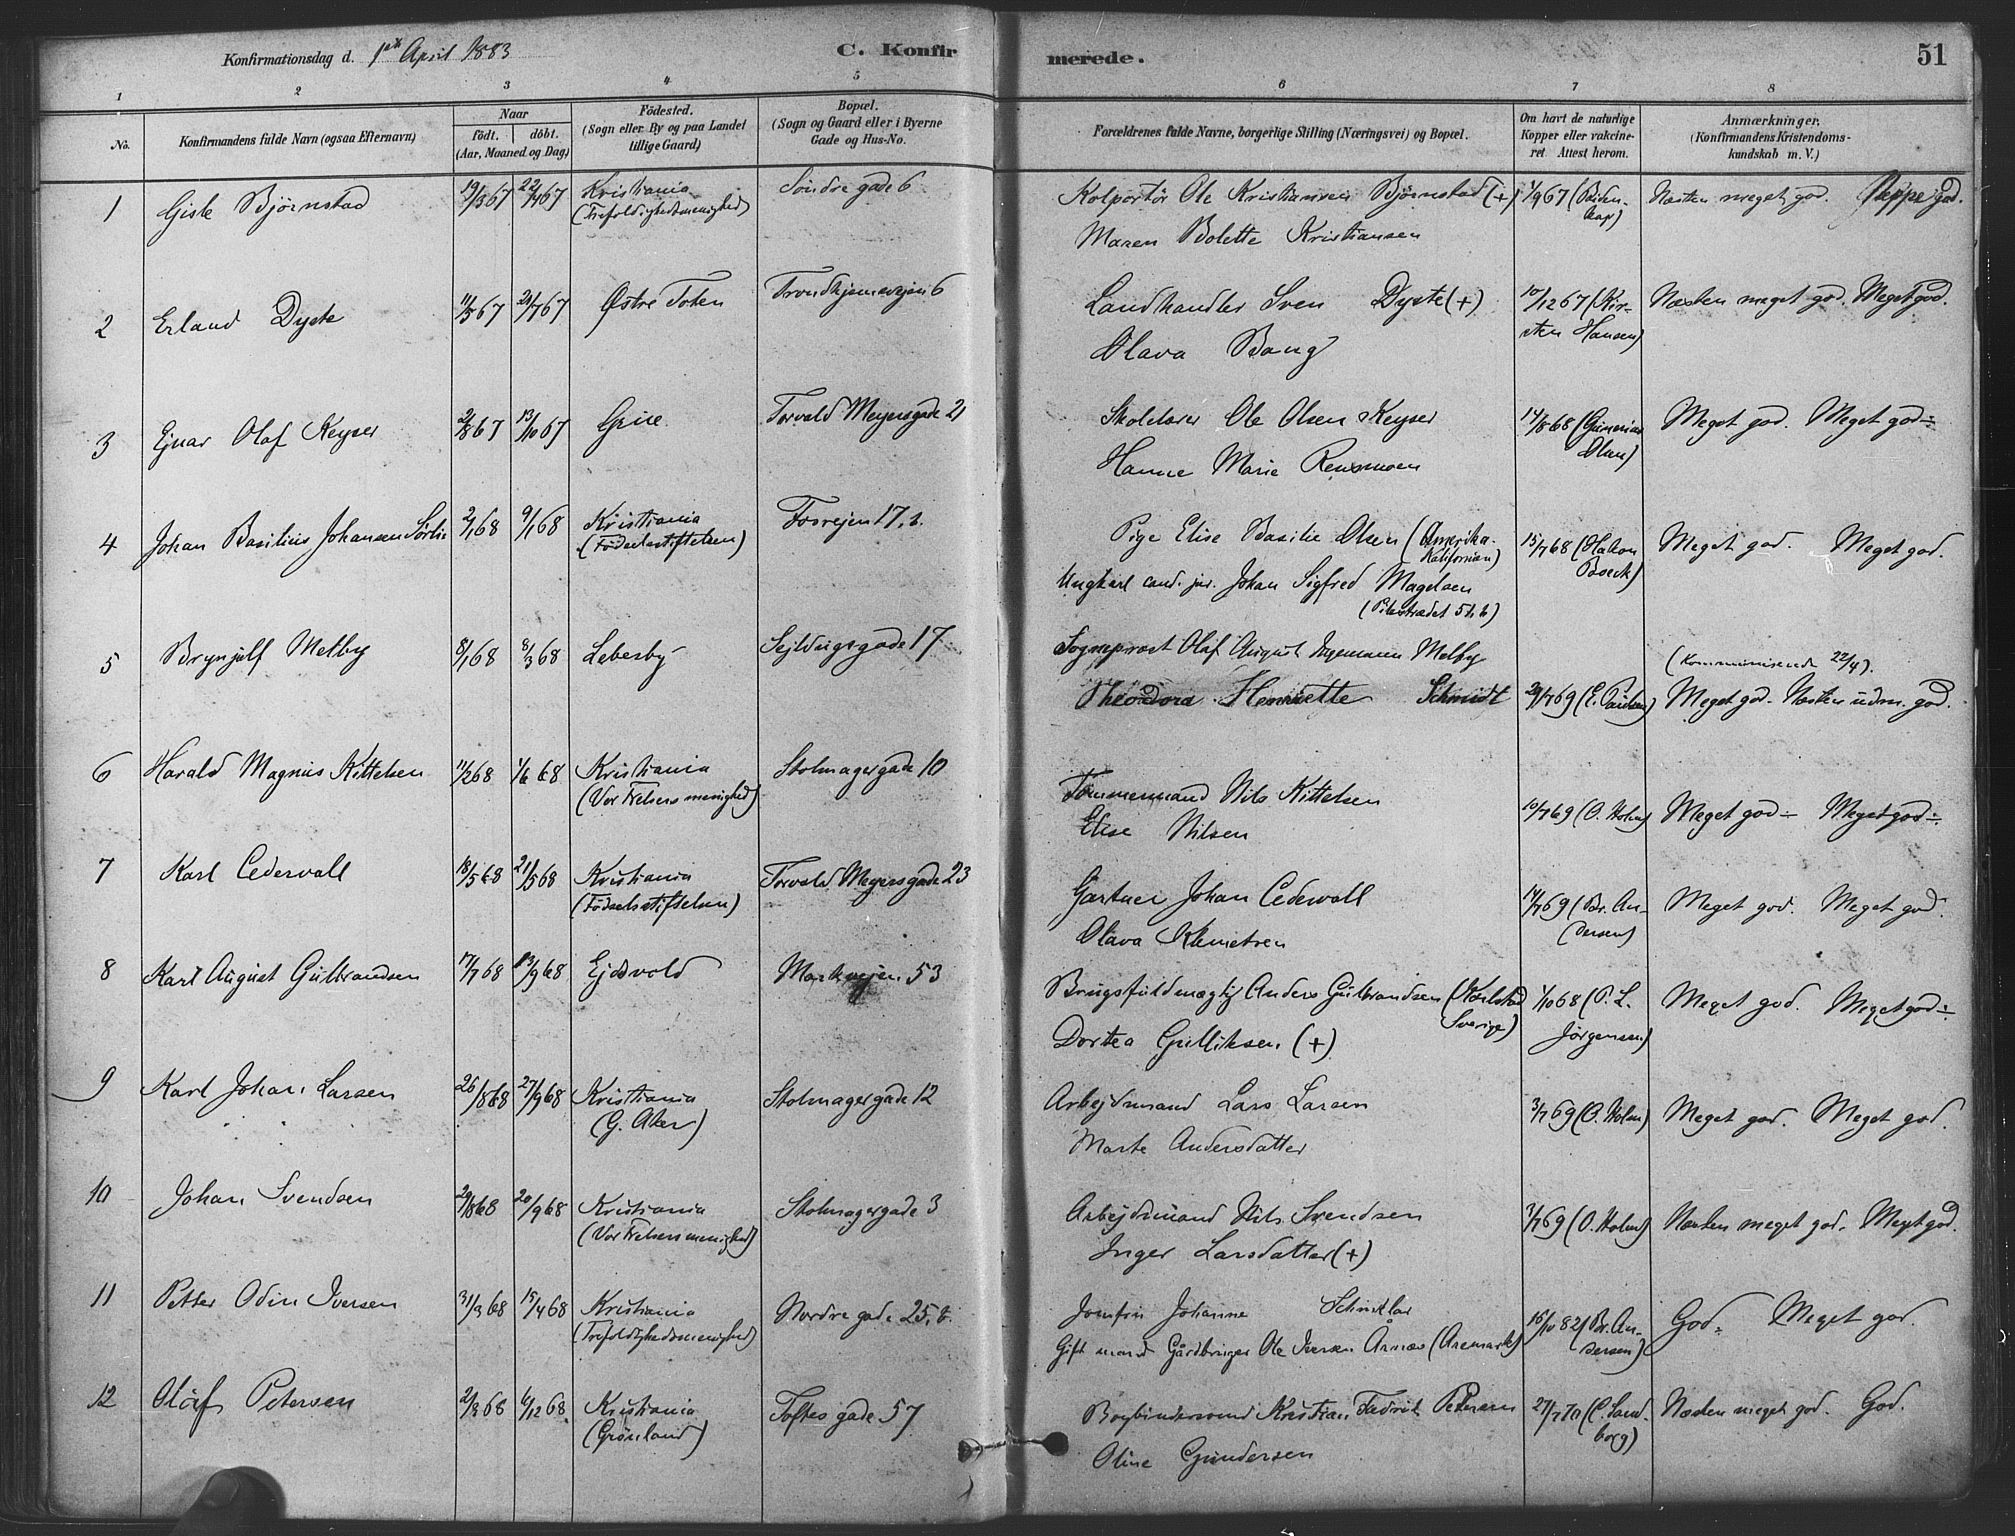 Konfirmationsdag d. 1ste April 1883 C. Konfir merede. 51
1 2 3 4 5 6 7 8
No. Konfirmandens fulde Navn (ogsaa Efternavn) Naar födt. döbt. (Aar, Maaned og Dag) Födested. (Sogn eller By og paa Landet tillige Gaard) Bopæl. (Sogn og Gaard eller i Byerne Gade og Hus-No. Forældrenes fulde Navne, borgerlige Stilling (Næringsvei) og Bopæl. Om havt de naturlige Kopper eller vakcineret. Attest herom. Anmærkninger. (Konfirmandens Kristendomskundskab m. V.)
1 Gisle Bjørnstad 19/3 67 22/4 67 Kristiania Söndre gade 6 Kolportör Ole Kristiansen Bjørnstad (+) 1/9 67 Næsten meget god.
(Trefoldighedsmenighed)
Maren Bolette Kristiansen
2 Erland Dyste 11/5 67 21/7 67 Østre Toten Trondhjemsvejen 6 Landhandler Sven Dyste (+) 10/12 67 (Kirsten Hansen) Næsten meget god. Meget god.
Olava Bang
3 Ejnar Olaf Keyser 2/8 67 13/10 67 Grue Torvald Meyersgade 21 Skolelærer Ole Olsen Keyser 14/8 68 Meget god. Meget god ÷
Hanne Marie
4 Johan Basilius Johansen Sörlie 2/1 68 9/1 68 Kristiania Fosvejen 17, Pige Elise Basilie Olsen (Amerika. Kalifornien) 15/7 68 (Hakon Boeck) Meget god. Meget god.
(Födselsstiftelsen)
Ungkarl cand. jur. Johan Sigfred Magelsen
(Pilestrædet 51, b)
5 Brynjulf Melby 8/1 68 8/3 68 Lebesby Sejldugsgade 17 Sogneprest Olaf August Ingemann Melby (Kommunicerende 22/4).
Theodora Henriette Schmidt 29/7 69 (E. Paulsen) Meget god. Næsten udm. god.
6 Harald Magnus Kittelsen 11/2 68 1/6 68 Kristiania Stolmagergade 10 Tömmermand Nils Kittelsen 10/7 69 (O. Holm) Meget god ÷ Meget god ÷
(Vor Frelsers menighed)
Elise Nilsen
7 Karl Cedervall 18/5 68 21/5 68 Kristiania Torvald Meyersgade 23 Gartner Johan Cedervall 14/7 69 (Br. Andersen) Meget god. Meget god.
(Födselsstiftelsen)
Olava Klemetsen
8 Karl August Gulbrandsen 17/7 68 13/9 68 Ejdsvold Markvejen 53 Brugsfuldmægtig Anders Gulbrandsen (Karlstad Sverige) 1/10 68 (P. L. Jörgensen) Meget god. Meget god ÷
Dortea Gulliksen (+)
9 Karl Johan Larsen 26/8 68 27/9 68 Kristiania Stolmagergade 12 Arbejdsmand Lars Larsen 3/7 69 (O. Holm) Meget god. Meget god.
(G. Aker)
Marte Andersdatter
10 Johan Svendsen 29/8 68 20/9 68 Kristiania Stolmagergade 3 Arbejdsmand Nils Svendsen 3/7 69 (O. Holm) Næsten meget god. Meget god.
(Vor Frelsers menighed)
Inger Larsdatter (+)
11 Petter Odin Iversen 31/3 68 15/4 68 Kristiania Nordre gade 25, b. Jomfru Johanne 16/10 82 (Br. Andersen) God ÷ Meget god.
(Trefoldighedsmenighed)
Gift mand Gårdbruger Ole Iversen Årnæs (Aremark)
12 Olaf Petersen 2/3 68 6/12 68 Kristiania Toftes gade 57 Bogbindersvend Kristian Fredrik Petersen 27/7 70 (C. Sandborg) Næsten meget god. God.
(Grönland)
Oline Gundersen